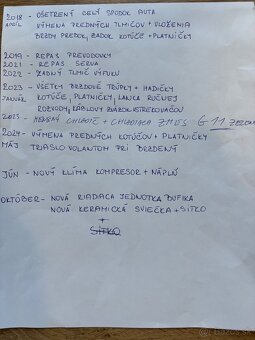 2018 - OŠETRENÝ CELÝ SPODOK AUTA
APRÍL VÝMENA PREDNÝCH TLMIČOV + ULOŽENIA
BRZDY PREDOK, ZADOK KOTÚČE + PLATNIČKY
2019 - REPAS PREVODOVKY
2021 - REPAS SERVA
2022 - ZADNÝ TLMIČ VÝFUKU
2023 - VŠETKY BRZDOVÉ TRUPKY + HADIČKY
JANUÁR KOTÚČE, PLATNIČKY, LANKA RUČNEJ
ROZVODY, KÁBLOVÝ ZVÄZOK OSTREKOVAČOV
2023 - CHLADIČ + CHLADIACA ZMES G 11 ZELENÁ
2024 - VÝMENA PREDNÝCH KOTÚČOV + PLATNIČKY
MÁJ TRIASLO VOLANTOM PRI BRZDENÝ
JÚN - NOVÝ KLÍMA KOMPRESOR + NÁPLŇ
OKTÓBER - NOVÁ RIADIACA JEDNOTKA BUFIKA
NOVÁ KERAMICKÁ SVIEČKA + SITKO
+
SITKO